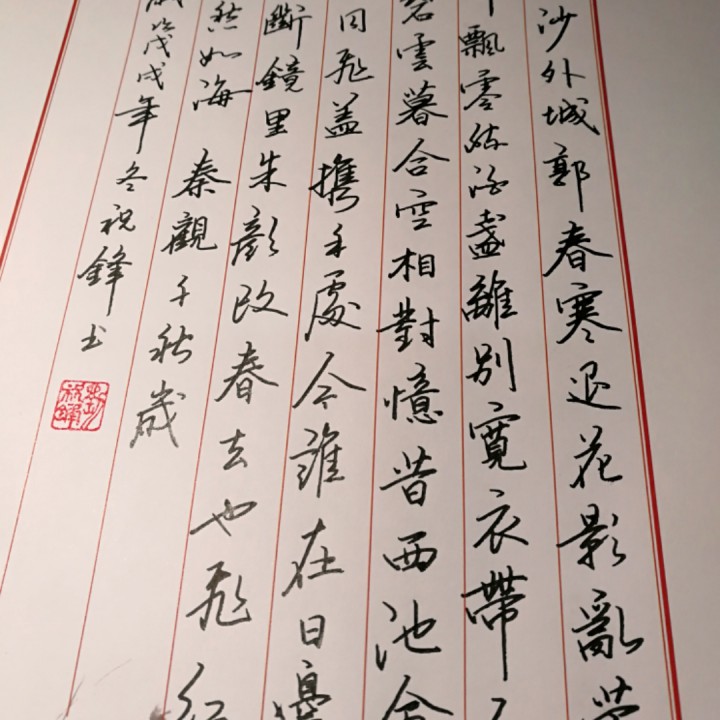 沙外城郭春寒退花影亂
飄零疏酒盞離別寬衣帶
碧雲暮合空相對憶昔西池會
同飛蓋携手處今誰在日邊
斷鏡里朱顏改春去也飛紅
愁如海 秦觀千秋歲
戊戌年冬祝鋒书